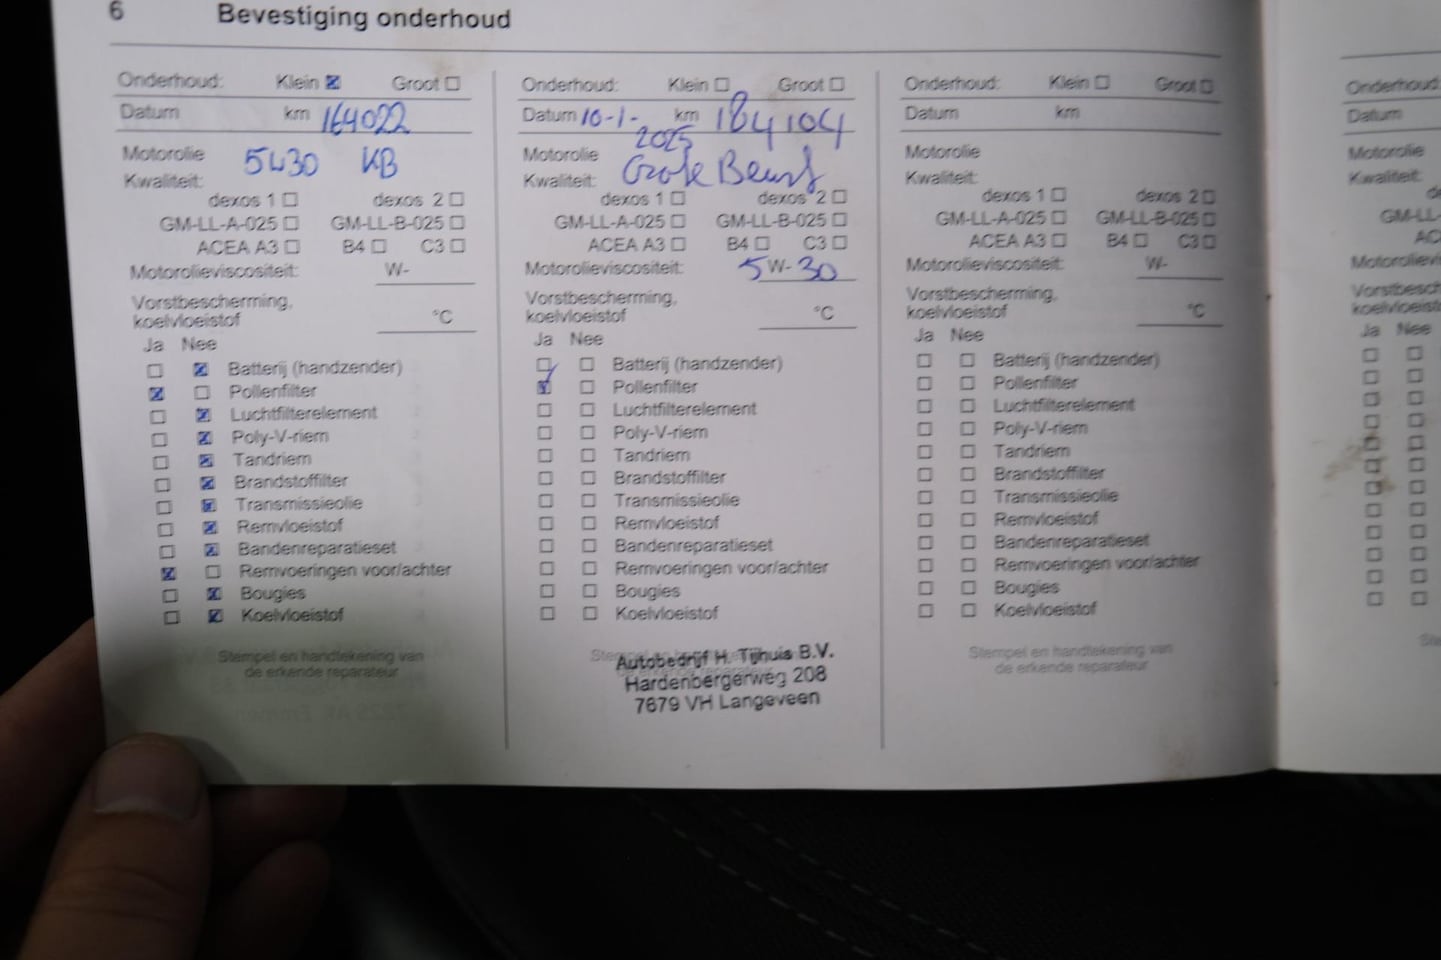 6 Bevestiging onderhoud
Onderhoud: Klein Groot
Datum km 164022
Motorolie 5W30 KB
Kwaliteit:
dexos 1 dexos 2
GM-LL-A-025 GM-LL-B-025
ACEA A3 B4 C3
Motorolieviscositeit: W-
Vorstbescherming,
koelvloeistof °C
Ja Nee
Batterij (handzender)
Pollenfilter
Luchtfilterelement
Poly-V-riem
Tandriem
Brandstoffilter
Transmissieolie
Remvloeistof
Bandenreparatieset
Remvoeringen voor/achter
Bougies
Koelvloeistof
Stempel en handtekening van
de erkende reparateur
Onderhoud: Klein Groot
Datum 10-1- km 184104
2025
Motorolie Grote Beurt
Kwaliteit:
dexos 1 dexos 2
GM-LL-A-025 GM-LL-B-025
ACEA A3 B4 C3
Motorolieviscositeit: 5 W- 30
Vorstbescherming,
koelvloeistof °C
Ja Nee
Batterij (handzender)
Pollenfilter
Luchtfilterelement
Poly-V-riem
Tandriem
Brandstoffilter
Transmissieolie
Remvloeistof
Bandenreparatieset
Remvoeringen voor/achter
Bougies
Koelvloeistof
Autobedrijf H. Tijhuis B.V.
Hardenbergerweg 208
7679 VH Langeveen
Onderhoud: Klein Groot
Datum km
Motorolie
Kwaliteit:
dexos 1 dexos 2
GM-LL-A-025 GM-LL-B-025
ACEA A3 B4 C3
Motorolieviscositeit: W-
Vorstbescherming,
koelvloeistof °C
Ja Nee
Batterij (handzender)
Pollenfilter
Luchtfilterelement
Poly-V-riem
Tandriem
Brandstoffilter
Transmissieolie
Remvloeistof
Bandenreparatieset
Remvoeringen voor/achter
Bougies
Koelvloeistof
Stempel en handtekening van
de erkende reparateur
Onderhoud:
Datum
Motorolie
Kwaliteit:
Ja Nee